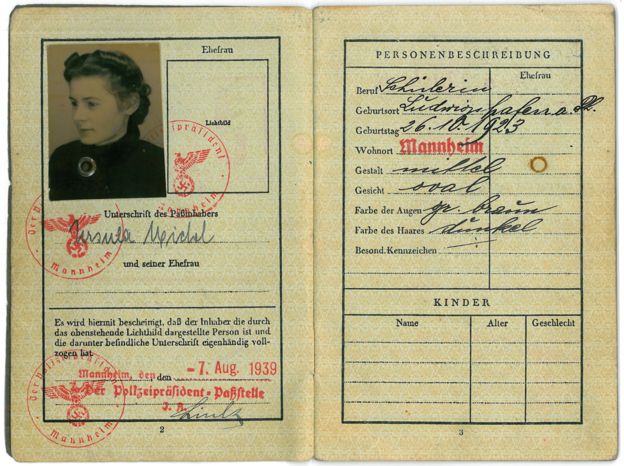 Ehefrau
Lichtbild
Der Polizeipräsident
Mannheim
Unterschrift des Paßinhabers
Ursula Michel
und seiner Ehefrau
Der Polizeipräsident
Mannheim
Es wird hiermit bescheinigt, daß der Inhaber die durch
das obenstehende Lichtbild dargestellte Person ist und
die darunter befindliche Unterschrift eigenhändig voll-
zogen hat
Mannheim, den den -7. Aug. 1939
Der Polizeipräsident - Paßstelle
Der Polizeipräsident
Mannheim
2
PERSONENBESCHREIBUNG
Ehefrau
Beruf Schülerin
Geburtsort Ludwigshafen a. Rh.
Geburtstag 26.10.1923
Wohnort Mannheim
Gestalt mittel
Gesicht oval
Farbe der Augen gr. braun
Farbe des Haares dunkel
Besond. Kennzeichen
KINDER
Name Alter Geschlecht
3